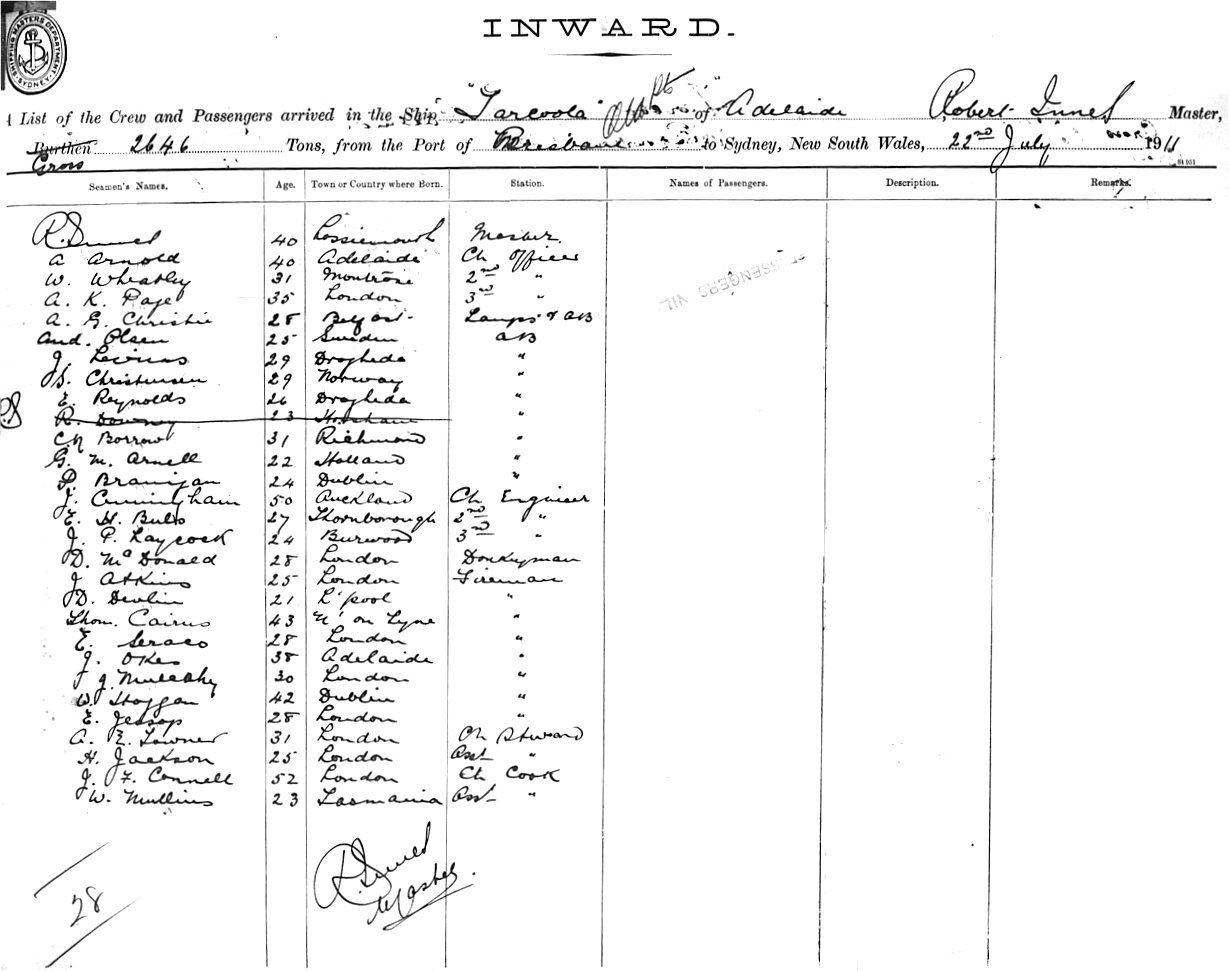 SHIPPING MASTERS DEPARTMENT SYDNEY
INWARD.
List of the Crew and Passengers arrived in the Ship "Tarcoola" of Adelaide Robert Innes Master,
Burthen 2646 Tons, from the Port of Brisbane to Sydney, New South Wales, 22nd July 1911
Gross
Seamen's Names. Age. Town or Country where Born. Station. Names of Passengers. Description. Remarks.
R. Innes 40 Lossiemouth Master
A Arnold 40 Adelaide Ch Officer
W. Wheatley 31 Montrose 2nd "
A. K. Page 35 London 3rd "
A. G. Christie 28 Belfast Lamps & AB
And. Olsen 25 Sweden AB
J. 29 Drogheda "
S. Christensen 29 Norway "
E. Reynolds 26 Drogheda "
R. Downey 23 Horsham "
Ch Borrow 31 Richmond "
G. M. Arnell 22 Holland "
P. Branigan 24 Dublin "
J. Cunningham 50 Auckland Ch Engineer
E. H. Bulb 27 Thornborough 2nd "
J. P. Laycock 24 Burwood 3rd "
D. McDonald 28 London Donkeyman
J. Atkins 25 London Fireman
D. Devlin 21 L'pool "
Thom. Cairns 43 N' on Tyne "
E. Seraco 28 London "
J. Okes 38 Adelaide "
J J Mulcahy 30 London "
W. Hoggan 42 Dublin "
E. Jessop 28 London "
A. E. Towner 31 London Ch Steward
H. Jackson 25 London Asst "
J. F. Connell 52 London Ch Cook
W. Mullins 23 Tasmania Asst "
PASSENGERS NIL
R. Innes
Master.
28